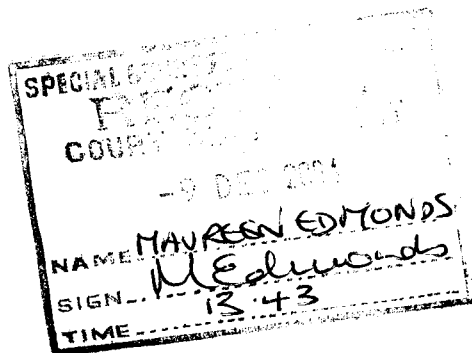 SPECIAL
COURT
-9 DEC 2004
NAME MAUREEN EDMONDS
SIGN MEdmonds
TIME 13.43